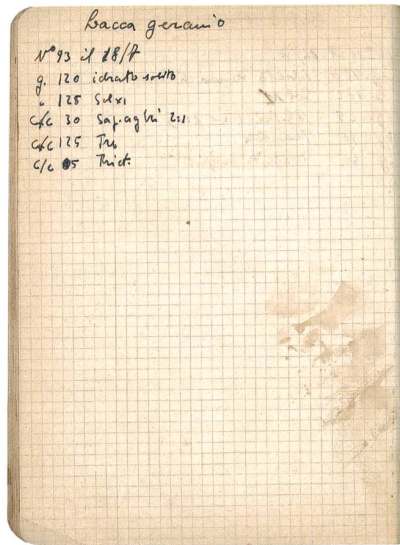 Lacca geranio
N° 93 il 28/7
g. 120 idrato solito
" 125 Selxi
c/c 30 Sap. aghi 2:1
c/c 125 Tro
c/c 05 Trict.